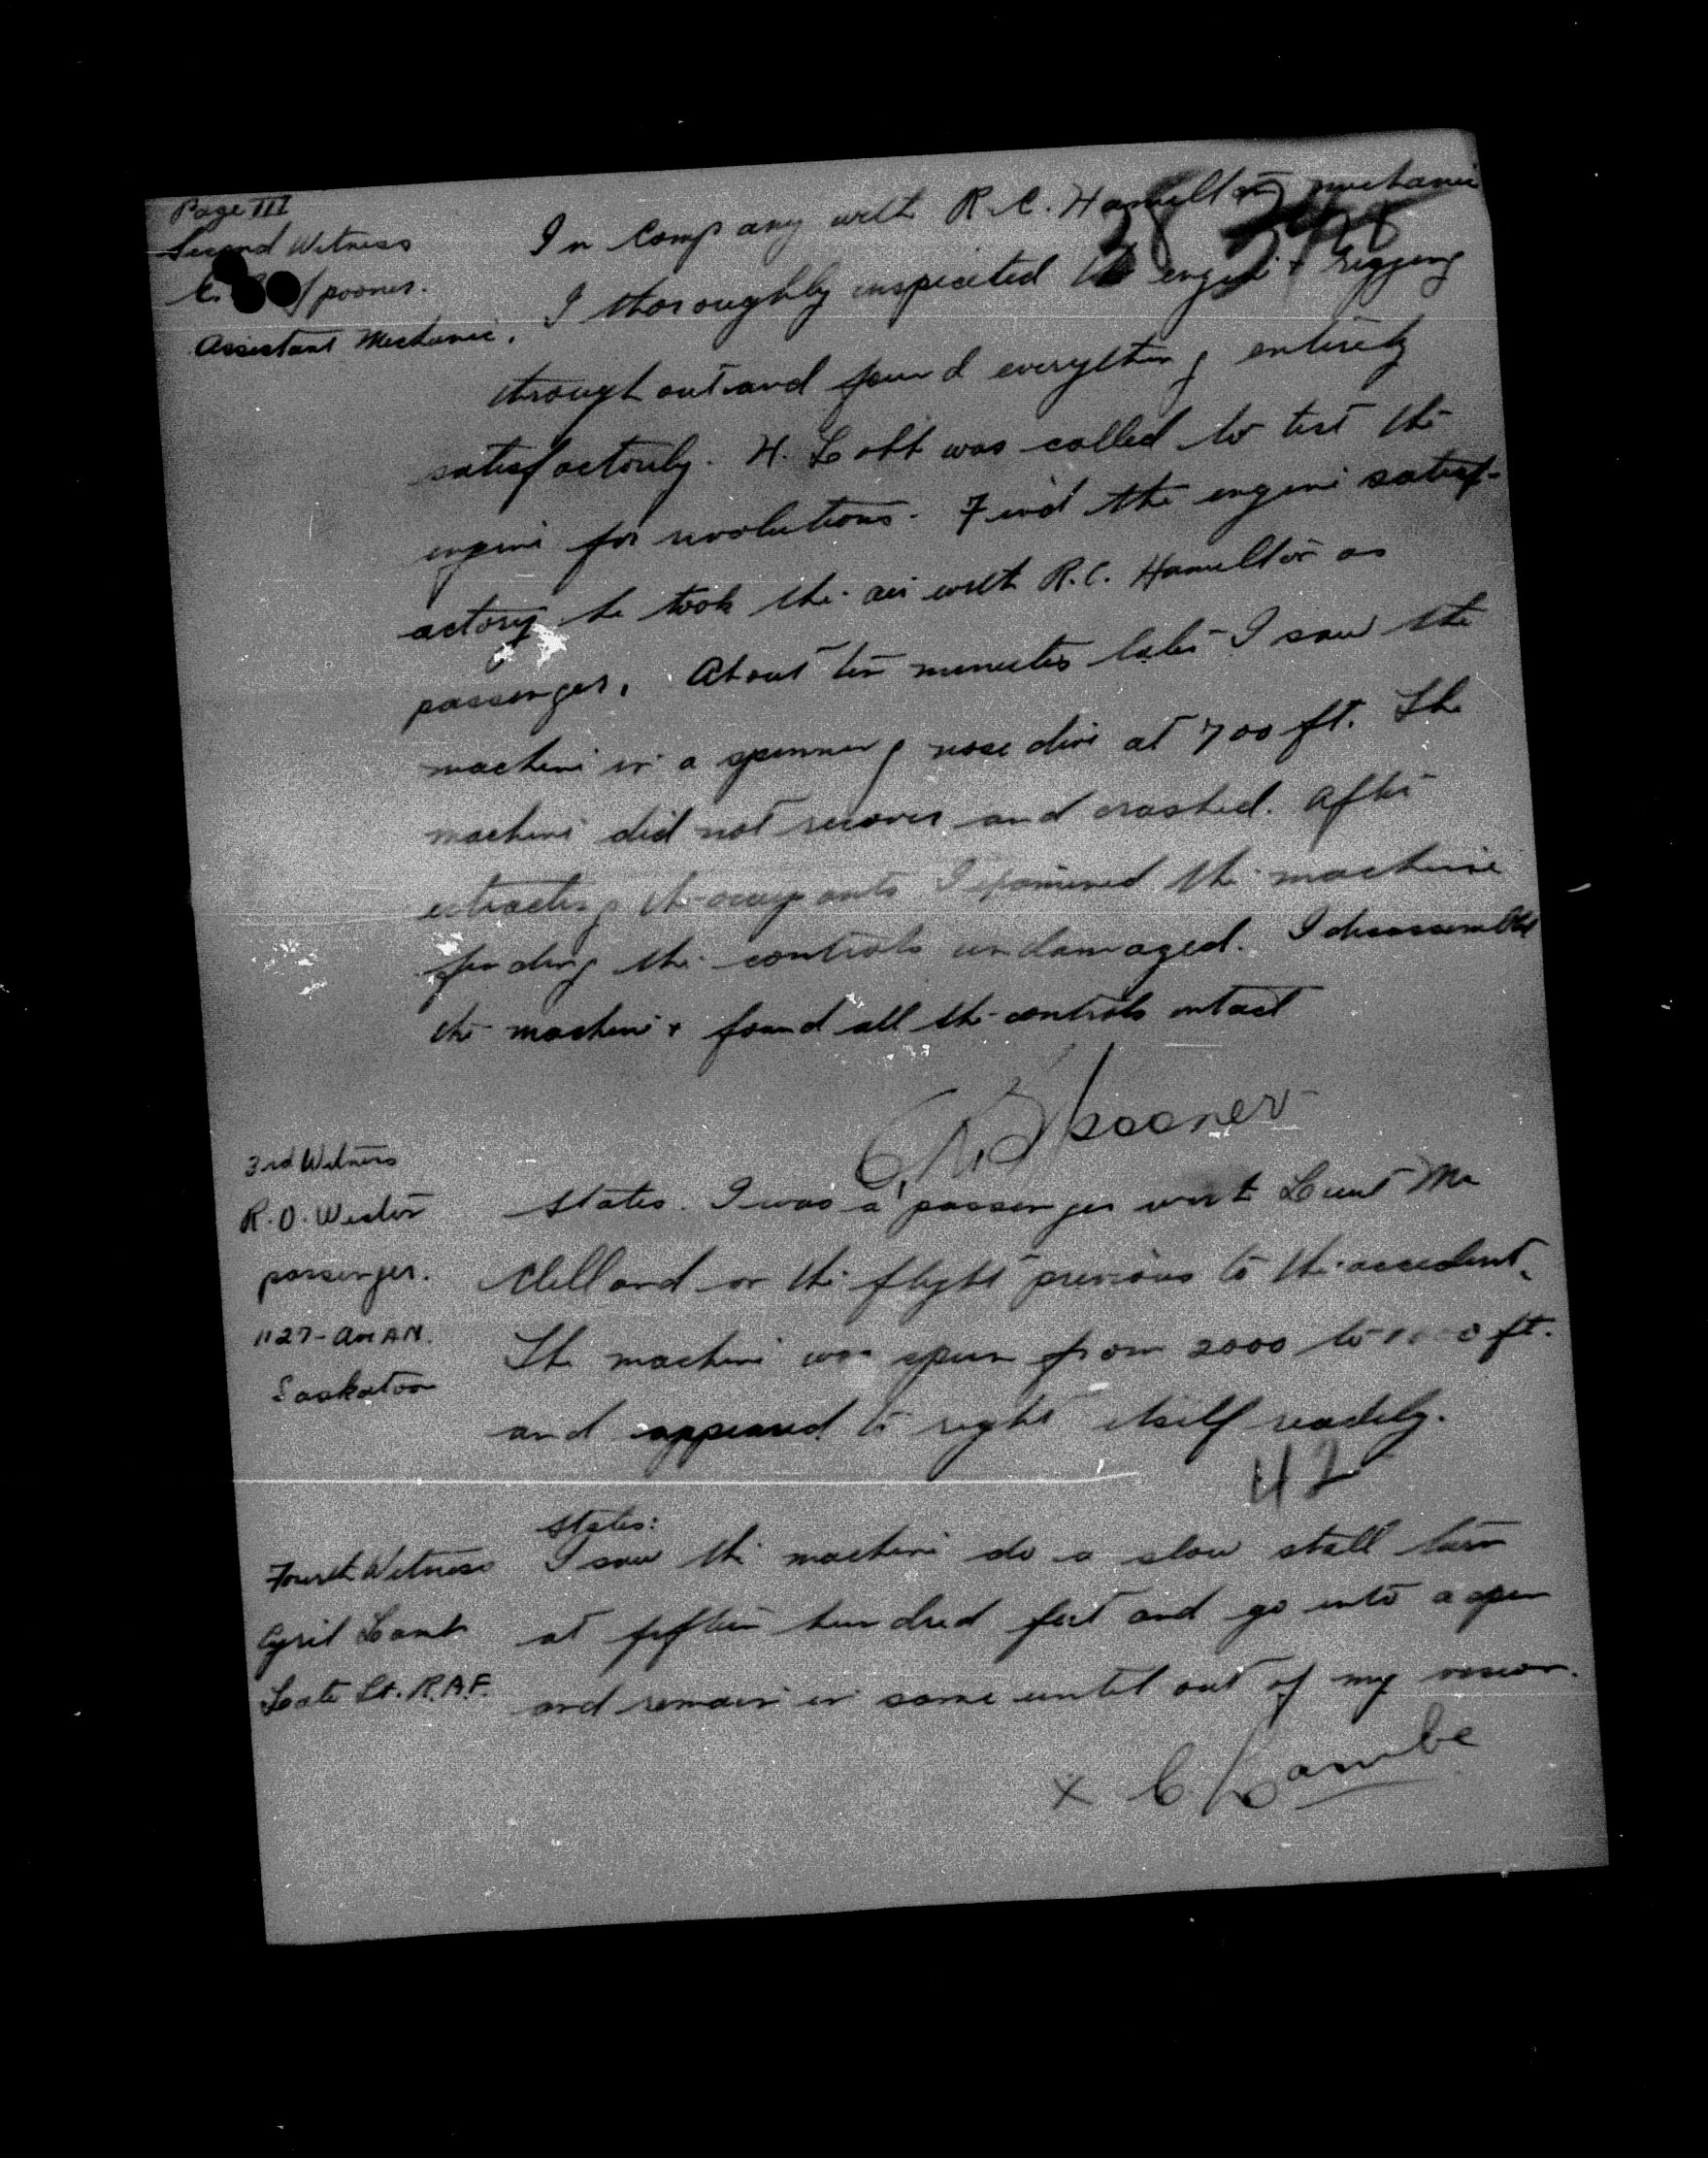 Page III
Second Witness
Spooner.
Assistant Mechanic.
In Company with R.C. Hamilton mechanic
28
I thoroughly inspected the engine + rigging
through out and found everything entirely
satisfactorily. H. Lobb was called to test the
engine for revolutions. Find the engine satisf-
actory he took the air with R.C. Hamilton as
passenger. About ten minutes later I saw the
machine in a spinning nose dive at 700 ft. The
machine did not recover and crashed. After
extracting the occupants I examined the machine
finding the controls undamaged. I disassembled
the machine + found all the controls intact
Spooner
3rd Witness
R.O. Wester
passenger.
1127- Ave A N.
Saskatoon
states. I was a passenger with Lieut Mc
Clelland on the flight previous to the accident.
The machine was spun from 2000 to 1000 ft.
and appeared to right itself readily.
42
Fourth Witness
Cyril Lamb
Late Lt. R.A.F.
states:
I saw the machine do a slow stall turn
at fifteen hundred feet and go into a spin
and remain in same until out of my vision.
x C Lambe